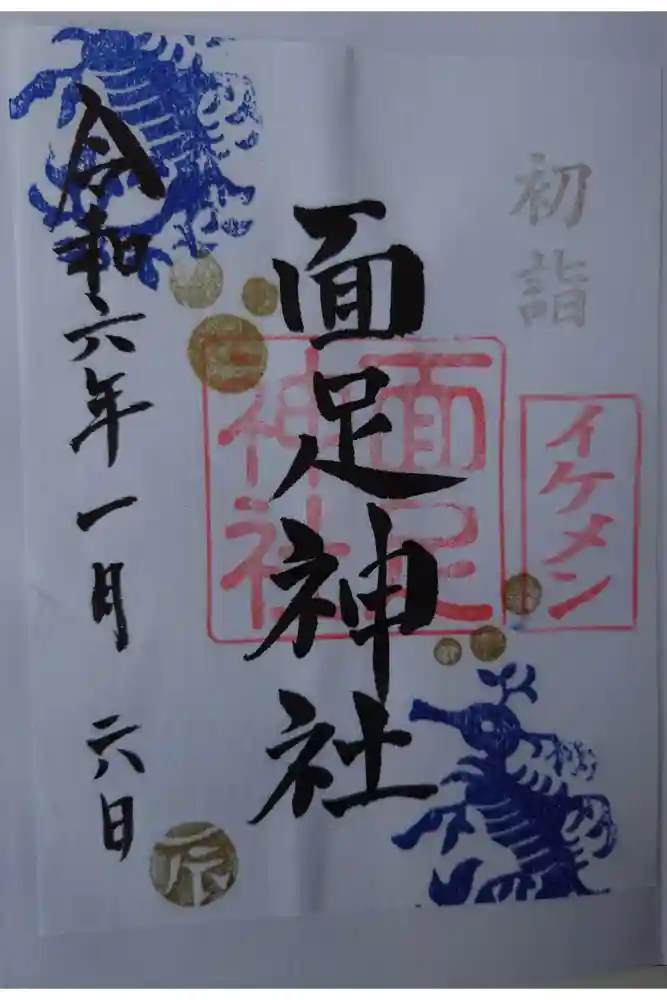 初詣
イケメン
面足神社
面足
神社
令和六年一月六日
辰